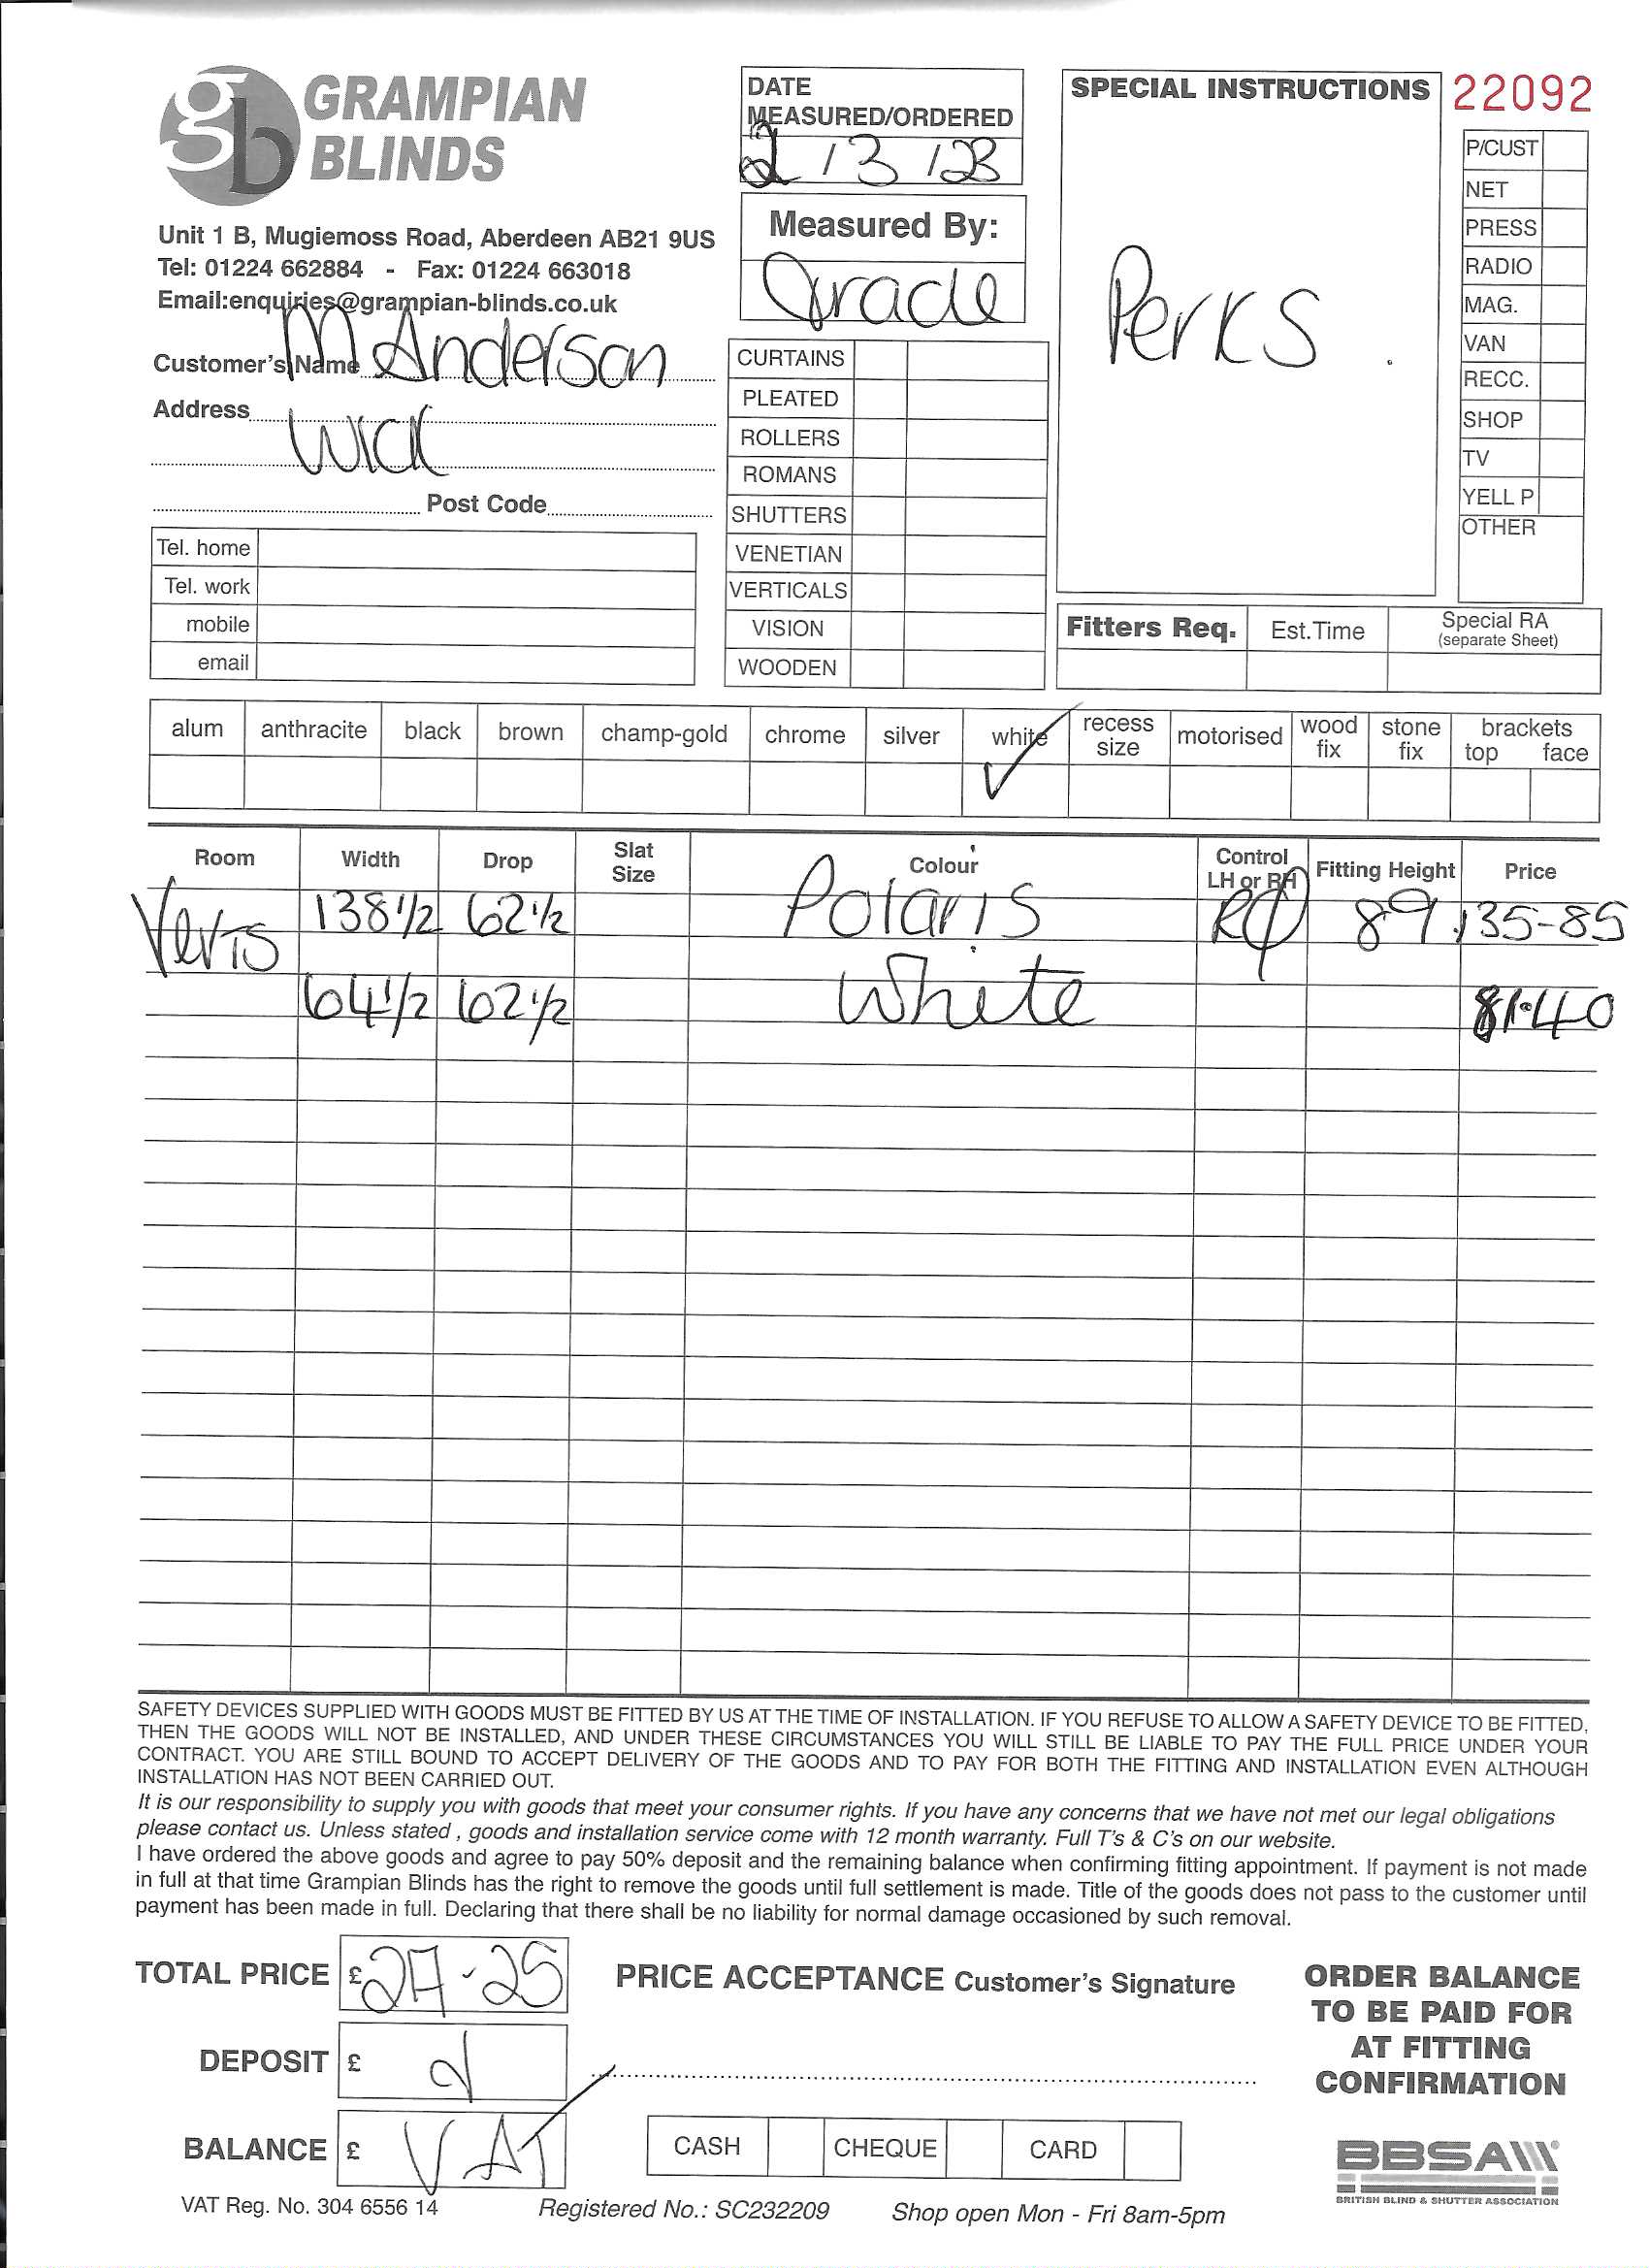 GRAMPIAN
BLINDS
Unit 1 B, Mugiemoss Road, Aberdeen AB21 9US
Tel: 01224 662884 - Fax: 01224 663018
Email:enquiries@grampian-blinds.co.uk
Customer's Name M Anderson
Address Wick
Post Code
Tel. home
Tel. work
mobile
email
DATE
MEASURED/ORDERED
2/3/23
Measured By:
Trade
CURTAINS
PLEATED
ROLLERS
ROMANS
SHUTTERS
VENETIAN
VERTICALS
VISION
WOODEN
SPECIAL INSTRUCTIONS
Perks.
22092
P/CUST
NET
PRESS
RADIO
MAG.
VAN
RECC.
SHOP
TV
YELL P
OTHER
Fitters Req. Est.Time Special RA
(separate Sheet)
alum anthracite black brown champ-gold chrome silver white recess size motorised wood fix stone fix brackets top face
Room Width Drop Slat Size Colour Control LH or RH Fitting Height Price
Verts 138 1/2 62 1/2 Polaris 89 135-85
64 1/2 62 1/2 White 81.40
SAFETY DEVICES SUPPLIED WITH GOODS MUST BE FITTED BY US AT THE TIME OF INSTALLATION. IF YOU REFUSE TO ALLOW A SAFETY DEVICE TO BE FITTED,
THEN THE GOODS WILL NOT BE INSTALLED, AND UNDER THESE CIRCUMSTANCES YOU WILL STILL BE LIABLE TO PAY THE FULL PRICE UNDER YOUR
CONTRACT. YOU ARE STILL BOUND TO ACCEPT DELIVERY OF THE GOODS AND TO PAY FOR BOTH THE FITTING AND INSTALLATION EVEN ALTHOUGH
INSTALLATION HAS NOT BEEN CARRIED OUT.
It is our responsibility to supply you with goods that meet your consumer rights. If you have any concerns that we have not met our legal obligations
please contact us. Unless stated , goods and installation service come with 12 month warranty. Full T's & C's on our website.
I have ordered the above goods and agree to pay 50% deposit and the remaining balance when confirming fitting appointment. If payment is not made
in full at that time Grampian Blinds has the right to remove the goods until full settlement is made. Title of the goods does not pass to the customer until
payment has been made in full. Declaring that there shall be no liability for normal damage occasioned by such removal.
TOTAL PRICE £ 217-25
DEPOSIT £
BALANCE £ VAT
PRICE ACCEPTANCE Customer's Signature
CASH CHEQUE CARD
ORDER BALANCE
TO BE PAID FOR
AT FITTING
CONFIRMATION
BBSA
BRITISH BLIND & SHUTTER ASSOCIATION
VAT Reg. No. 304 6556 14 Registered No.: SC232209 Shop open Mon - Fri 8am-5pm